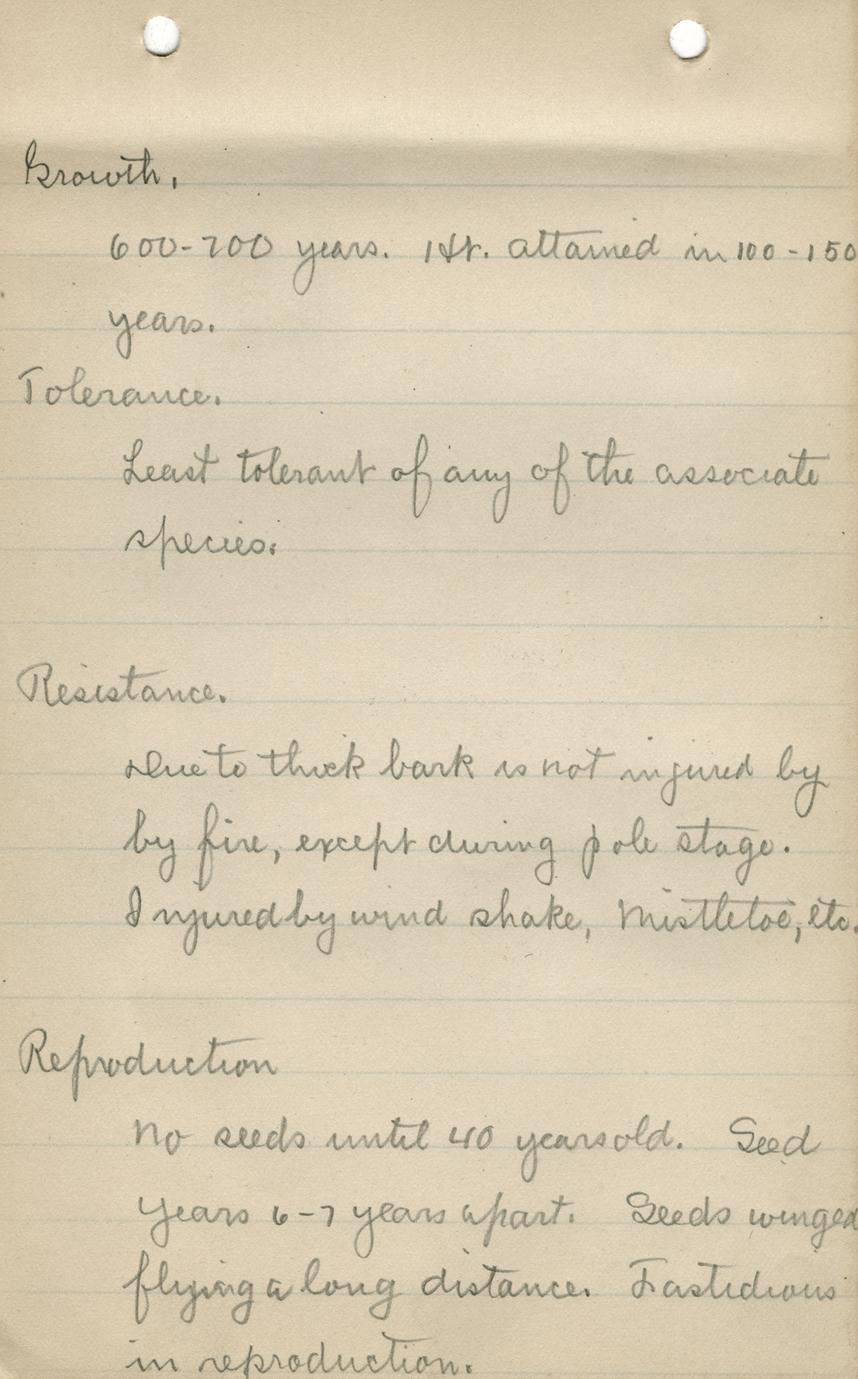 Growth.
600-700 years. Ht. attained in 100-150
years.
Tolerance.
Least tolerant of any of the associate
species.
Resistance.
Due to thick bark is not injured by
by fire, except during pole stage.
Injured by wind shake, Mistletoe, etc.
Reproduction
No seeds until 40 years old. Seed
Years 6-7 years apart. Seeds winged
flying a long distance. Fastidious
in reproduction.